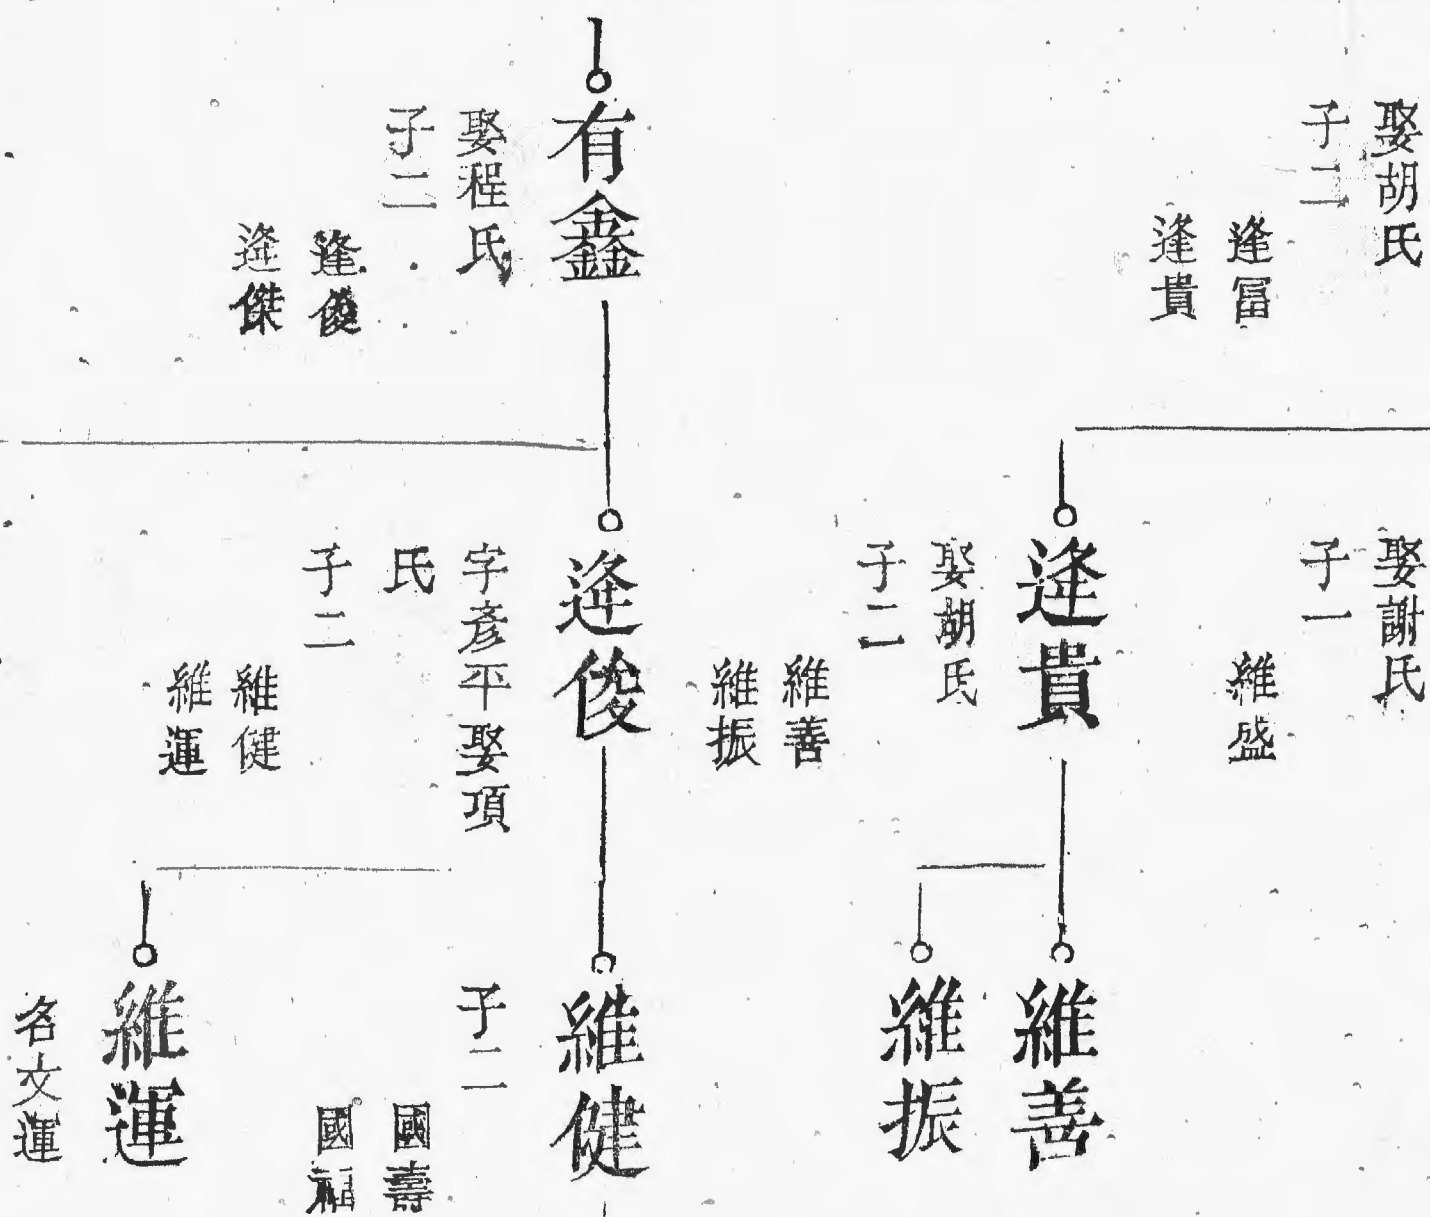 娶胡氏
子二
逢冨
逢貴
有鑫
娶程氏
子二
逢俊
逢傑
娶謝氏
子一
維盛
逢貴
娶胡氏
子二
維善
維振
逢俊
字彥平娶項
氏
子二
維健
維運
維善
維振
維健
子二
國壽
國福
維運
名文運